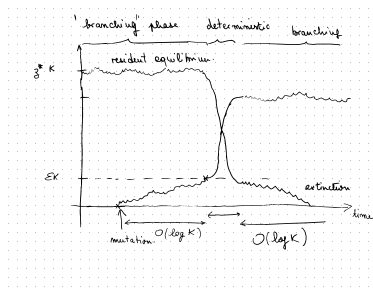 "branching" phase deterministic branching
resident equilibrium.
z* K
εK
extinction
time
mutation.
O(log K)
O(log K)